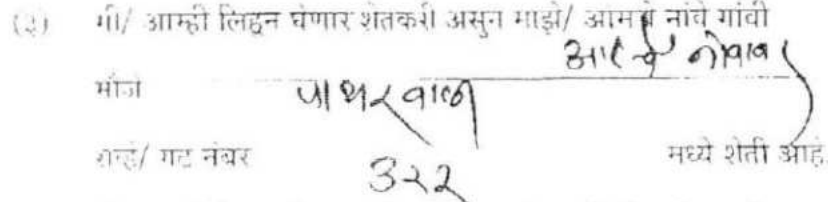 (३) मी/ आम्ही लिहून घेणार शेतकरी असुन माझे/ आमचे नांवे गांवी
मौजे पाथरवाला
सर्व्हे/ गट नंबर ३२२ मध्ये शेती आहे.